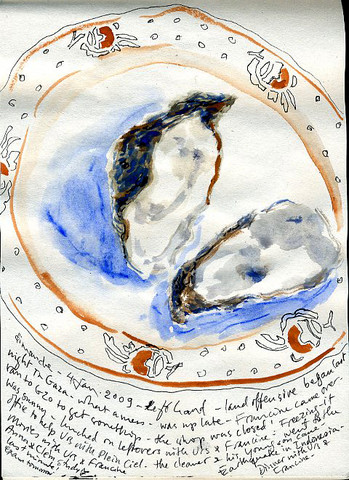 Dimanche - 4 Jan. 2009 - Left Hand - land offensive began last
night in Gaza. what a mess - was up late - Francine came over.
ran to G20 to get something - the shop was closed! Freezing it
was sunny - lunched on leftovers with Urs & Francine - went to the
to help Urs with Plein Ciel. the cleaner & his young son came
movies with Urs & Francine Earthquake in Indonesia.
Dinner with Urs &
last minute Francine.